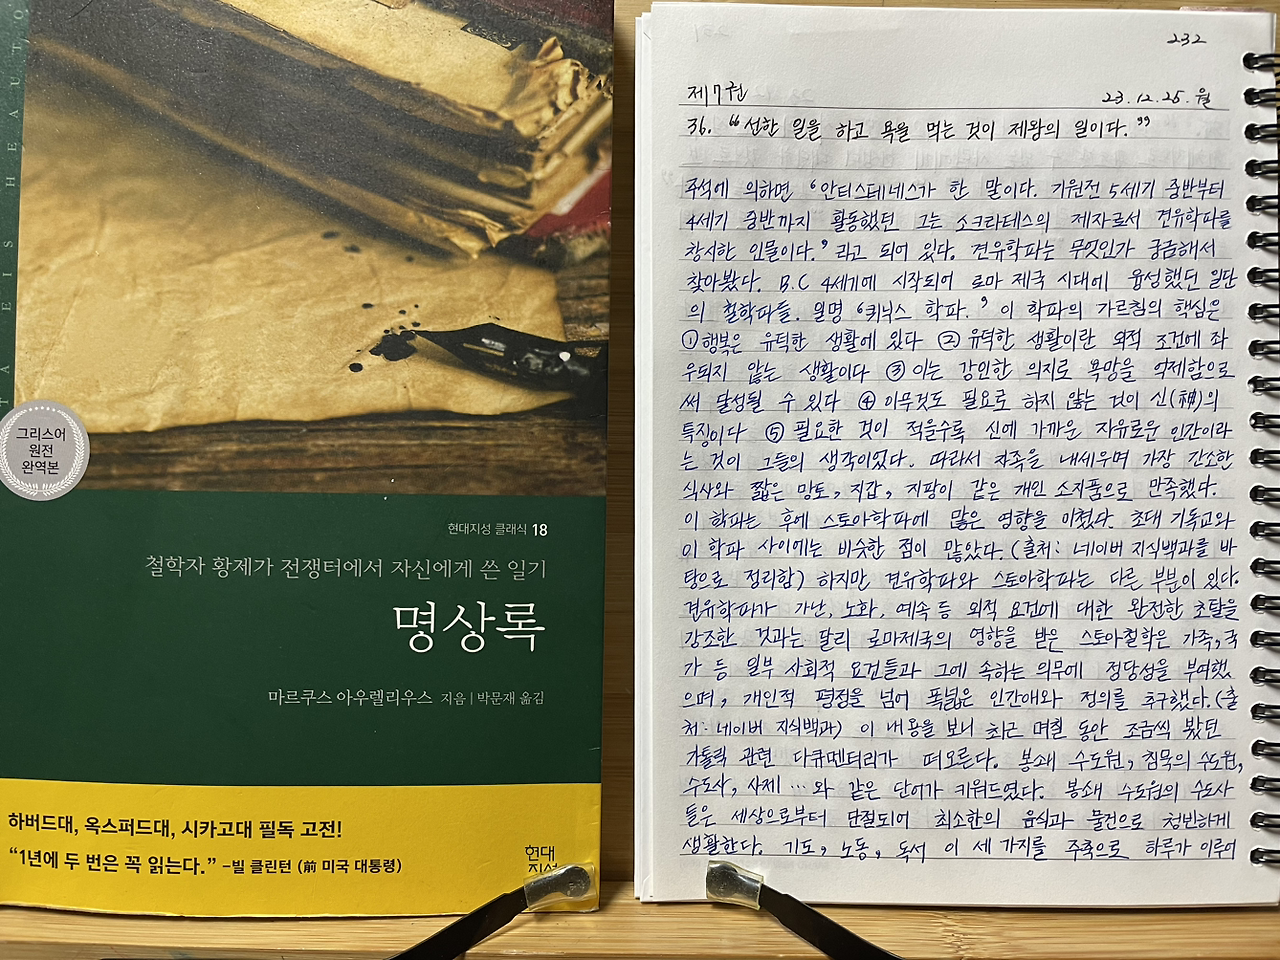 T A E I S H E A U T O
그리스어
원전
완역본
현대지성 클래식 18
철학자 황제가 전쟁터에서 자신에게 쓴 일기
명상록
마르쿠스 아우렐리우스 지음 | 박문재 옮김
하버드대, 옥스퍼드대, 시카고대 필독 고전!
“1년에 두 번은 꼭 읽는다.” -빌 클린턴 (前 미국 대통령)
현대
지성
232
제7권 23.12.25.월
36. “선한 일을 하고 욕을 먹는 것이 제왕의 일이다.”
주석에 의하면 ‘안티스테네스가 한 말이다. 기원전 5세기 중반부터
4세기 중반까지 활동했던 그는 소크라테스의 제자로서 견유학파를
창시한 인물이다.’ 라고 되어 있다. 견유학파는 무엇인가 궁금해서
찾아봤다. B.C 4세기에 시작되어 로마 제국 시대에 융성했던 일단
의 철학파들. 일명 ‘키닉스 학파.’ 이 학파의 가르침의 핵심은
① 행복은 유덕한 생활에 있다 ② 유덕한 생활이란 외적 조건에 좌
우되지 않는 생활이다 ③ 이는 강인한 의지로 욕망을 억제함으로
써 달성될 수 있다 ④ 아무것도 필요로 하지 않는 것이 신(神)의
특징이다 ⑤ 필요한 것이 적을수록 신에 가까운 자유로운 인간이라
는 것이 그들의 생각이었다. 따라서 자족을 내세우며 가장 간소한
식사와 짧은 망토, 지갑, 지팡이 같은 개인 소지품으로 만족했다.
이 학파는 후에 스토아학파에 많은 영향을 미쳤다. 초대 기독교와
이 학파 사이에는 비슷한 점이 많았다. (출처: 네이버 지식백과를 바
탕으로 정리함) 하지만 견유학파와 스토아학파는 다른 부분이 있다.
견유학파가 가난, 노화, 예속 등 외적 요건에 대한 완전한 초탈을
강조한 것과는 달리 로마제국의 영향을 받은 스토아철학은 가족, 국
가 등 일부 사회적 요건들과 그에 속하는 의무에 정당성을 부여했
으며, 개인적 평정을 넘어 폭넓은 인간애와 정의를 추구했다. (출
처: 네이버 지식백과) 이 내용을 보니 최근 며칠 동안 조금씩 봤던
가톨릭 관련 다큐멘터리가 떠오른다. 봉쇄 수도원, 침묵의 수도원,
수도사, 사제 … 와 같은 단어가 키워드였다. 봉쇄 수도원의 수도사
들은 세상으로부터 단절되어 최소한의 음식과 물건으로 청빈하게
생활한다. 기도, 노동, 독서 이 세 가지를 주축으로 하루가 이루어